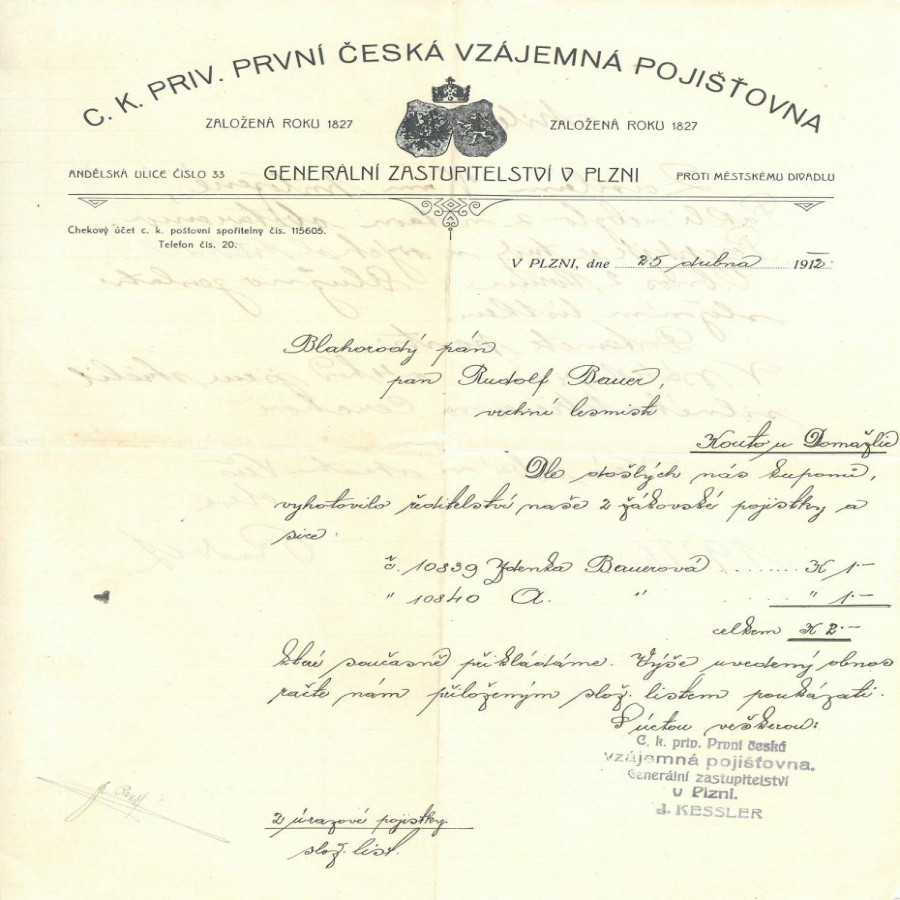 C. K. PRIV. PRVNÍ ČESKÁ VZÁJEMNÁ POJIŠŤOVNA
ZALOŽENÁ ROKU 1827 ZALOŽENÁ ROKU 1827
ANDĚLSKÁ ULICE ČÍSLO 33 GENERÁLNÍ ZASTUPITELSTVÍ V PLZNI PROTI MĚSTSKÉMU DIVADLU
Chekový účet c. k. poštovní spořitelny čís. 115605.
Telefon čís. 20.
V PLZNI, dne 25 dubna 1912.
Blahorodý pán
pán Rudolf Bauer,
vrchní lesmistr
Kouto u Domažlic
Dle došlých nás kuponů,
vyhotovilo ředitelství naše 2 žákovské pojistky a
sice:
č. 10839 Zdenka Bauerová ........ K 1.–
" 10840 A. " " 1.–
celkem K 2.–
kteé současně přikládáme. Výše uvedený obnos
račte nám přiloženým slož. listem poukázati.
S úctou veškerou:
C. k. priv. První česká
vzájemná pojišťovna.
Generální zastupitelství
v Plzni.
J. KESSLER
2 úrazové pojistky.
slož. list.